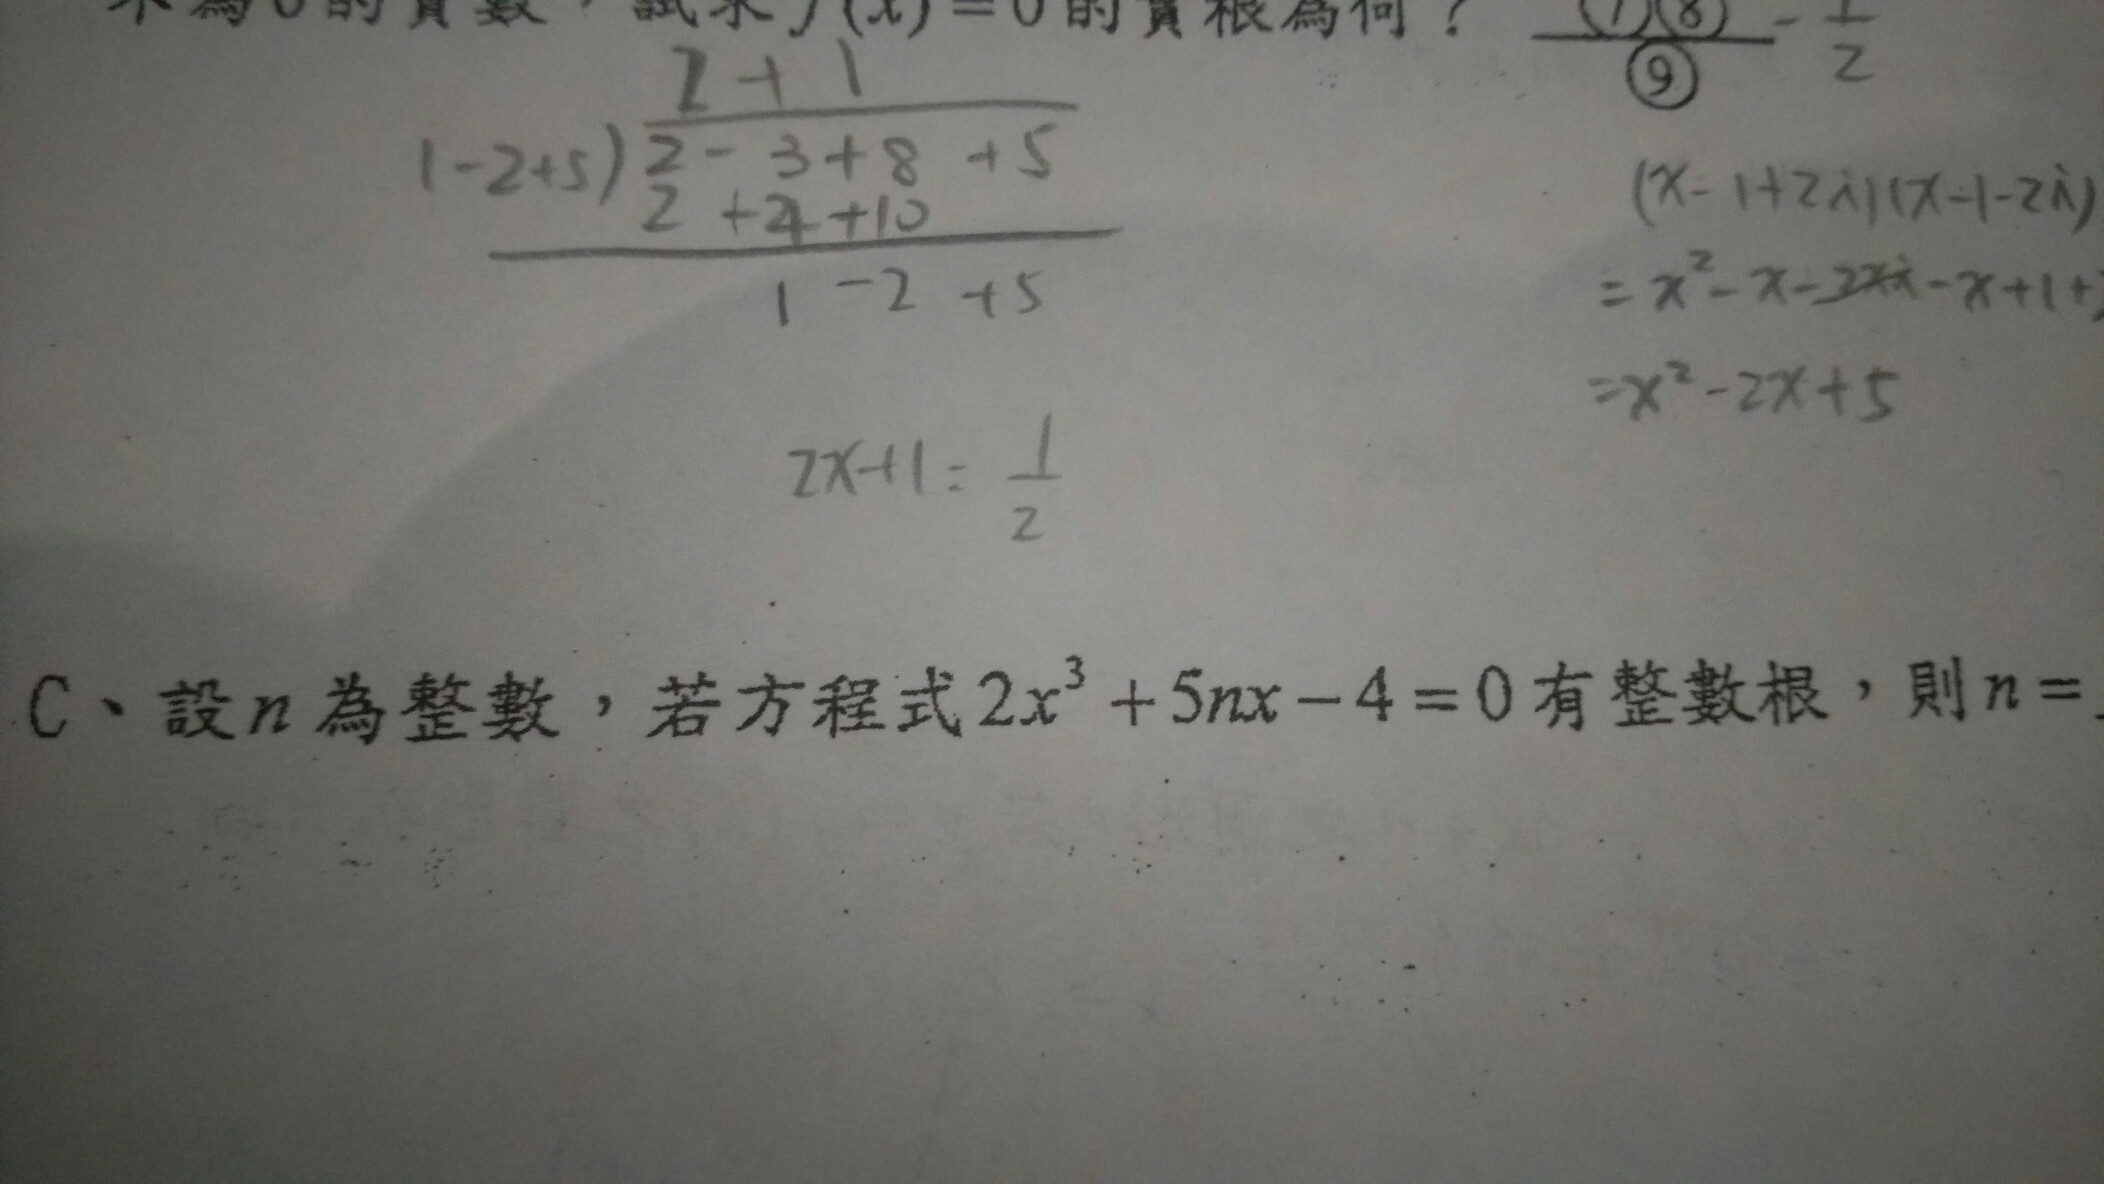 不為0的實數，試求f(x)=0的實根為何？ ⑦⑧ - 1/2
⑨
2+1
1-2+5)2-3+8+5
2+4+10
1-2+5
(x-1+2i)(x-1-2i)
=x²-x-2xi-x+1+
=x²-2x+5
2x+1=1/2
C、設n為整數，若方程式2x³+5nx-4=0有整數根，則n=